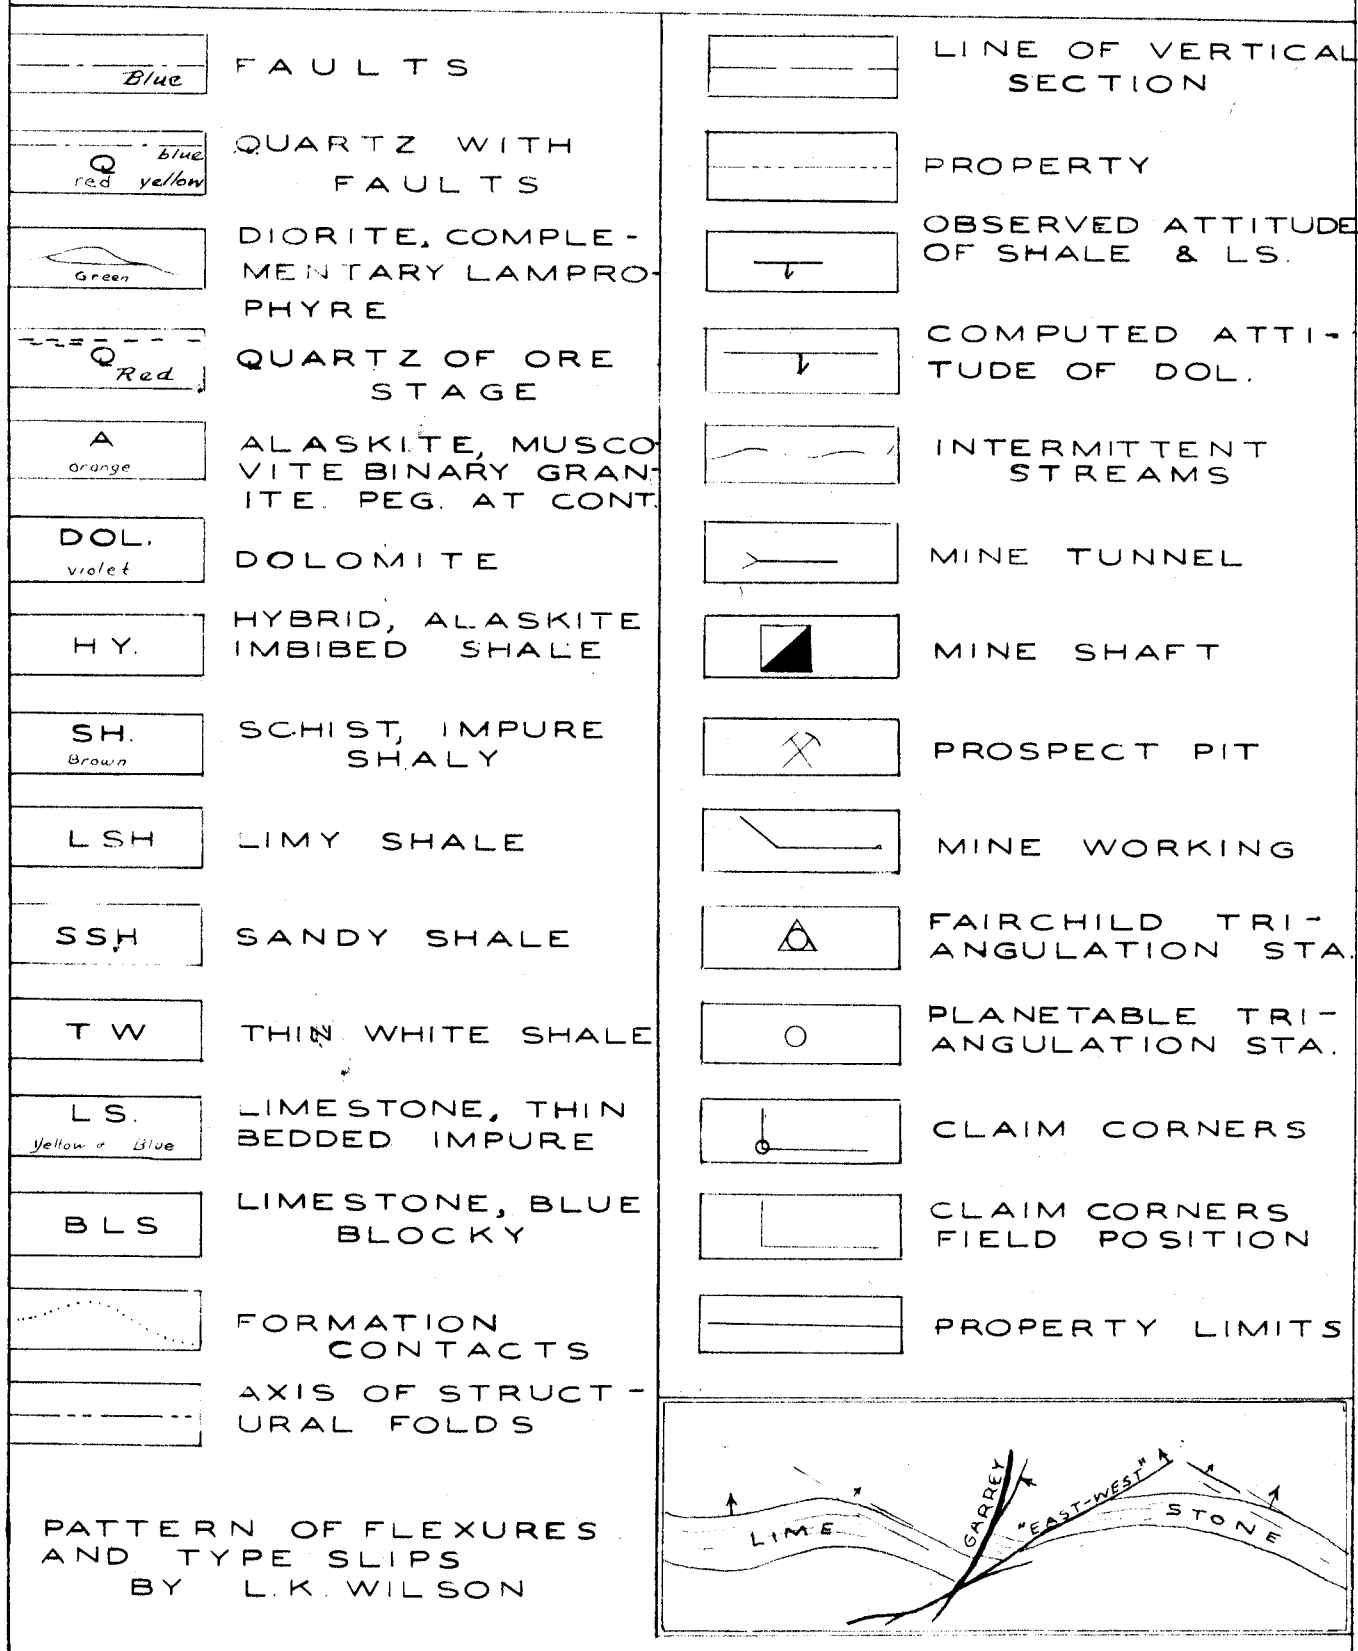 Blue
FAULTS
blue
Q
red yellow
QUARTZ WITH
FAULTS
Green
DIORITE, COMPLE-
MENTARY LAMPRO-
PHYRE
Q
Red
QUARTZ OF ORE
STAGE
A
orange
ALASKITE, MUSCO-
VITE BINARY GRAN-
ITE. PEG. AT CONT.
DOL.
violet
DOLOMITE
HY.
HYBRID, ALASKITE
IMBIBED SHALE
SH.
Brown
SCHIST, IMPURE
SHALY
LSH
LIMY SHALE
SSH
SANDY SHALE
TW
THIN WHITE SHALE
LS.
Yellow & Blue
LIMESTONE, THIN
BEDDED IMPURE
BLS
LIMESTONE, BLUE
BLOCKY
FORMATION
CONTACTS
AXIS OF STRUCT-
URAL FOLDS
PATTERN OF FLEXURES
AND TYPE SLIPS
BY L.K. WILSON
LINE OF VERTICAL
SECTION
PROPERTY
OBSERVED ATTITUDE
OF SHALE & LS.
COMPUTED ATTI-
TUDE OF DOL.
INTERMITTENT
STREAMS
MINE TUNNEL
MINE SHAFT
PROSPECT PIT
MINE WORKING
FAIRCHILD TRI-
ANGULATION STA.
PLANETABLE TRI-
ANGULATION STA.
CLAIM CORNERS
CLAIM CORNERS
FIELD POSITION
PROPERTY LIMITS
LIME
GARREY
"EAST-WEST"
STONE